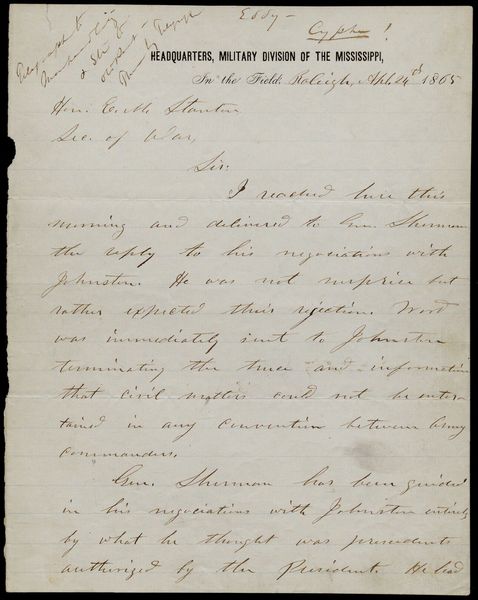 Eddy-
Cypher!
Telegraph to
& Stg
by Telegraph
HEADQUARTERS, MILITARY DIVISION OF THE MISSISSIPPI,
In the Field, Raleigh, Apl. 24th 1865
Hon. E. M. Stanton
Sec. of War,
Sir:
I reached here this
morning and delivered to Gen. Sherman
the reply to his negociations with
Johnston. He was not surprise but
rather expected this rejection. Word
was immediately sent to Johnston
terminating the truce and information
that civil matters could not be enter-
tained in any convention between Army
Commanders.
Gen. Sherman has been guided
in his negociations with Johnston entirely
by what he thought was precedents
authorized by the President. He had